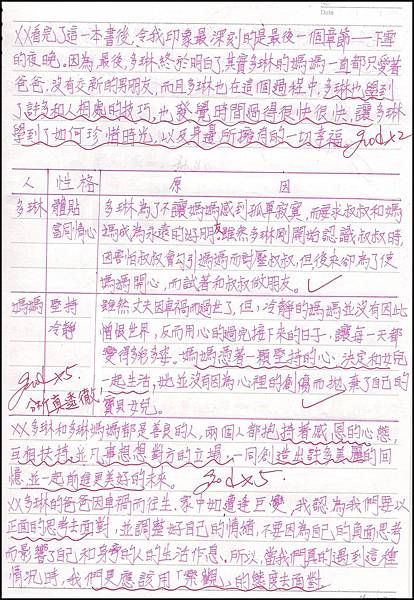 No.
Date
XX看完了這一本書後,令我印象最深刻的是最後一個章節——下雪
的夜晚。因為,最後,多琳終於明白了,其實多琳的媽媽一直都只愛著
爸爸,沒有交新的男朋友,而且多琳也在這個過程中,多琳也學到
了許多和人相處的技巧,也發覺時間過得很快很快,讓多琳
學到了如何珍惜時光,以及身邊所擁有的一切幸福。good x2
人 性格 原因
多琳 體貼 多琳為了不讓媽媽感到孤單寂寞,而要求叔叔和媽
富同情心 媽成為永遠的好朋友。雖然多琳剛開始認識叔叔時,
因害怕叔叔會勾引媽媽而討壓叔叔,但後來卻為了使
媽媽開心,而試著和叔叔做朋友。
媽媽 堅持 雖然丈夫因車禍而過世了,但,冷靜的媽媽並沒有因此
冷靜 憎恨世界,反而用心的過完接下來的日子,讓每一天都
變得多彩多姿。媽媽憑著一顆堅持的心,決定和女兒
good x5. 一起生活,她並沒有因為心裡的創傷而拋棄了自己的
分析真透徹! 寶貝女兒。
XX多琳和多琳媽媽都是善良的人,兩個人都抱持著感恩的心態,
互相扶持,並凡事想想對方的立場,一同創造出許多美麗的回
憶,並一起前進更美好的未來。good x5.
XX多琳的爸爸因車禍而往生,家中如遭逢巨變,我認為我們要以
正面的思考去面對,並調整好自己的情緒,不要因為自己的負面思考
而影響了自己和身旁的人的生活作息。所以,當我們真的遇到這種
情況時,我們更應該用「樂觀」的態度去面對。